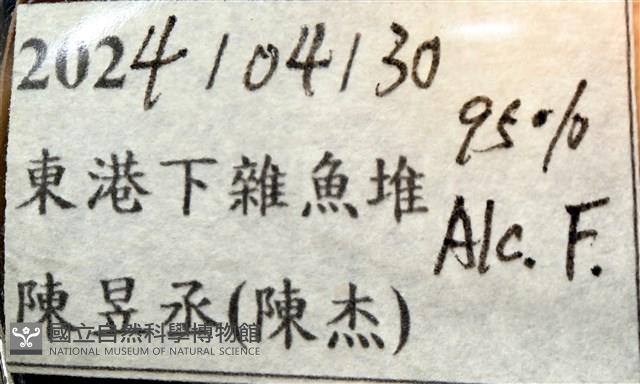 2024/04/30
95%
東港下雜魚堆
Alc. F.
陳昱丞(陳杰)
國立自然科學博物館
NATIONAL MUSEUM OF NATURAL SCIENCE